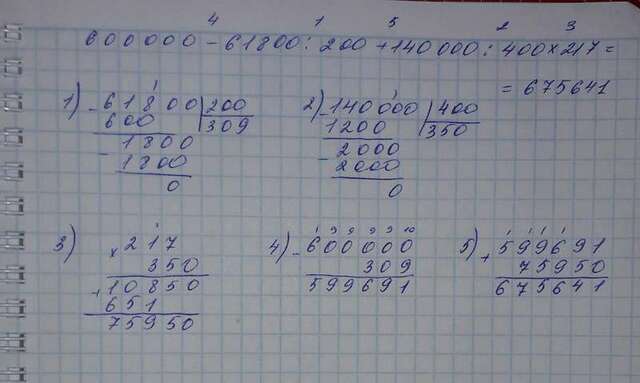 4 1 5 2 3
600000 - 61800 : 200 + 140000 : 400 × 217 =
= 675641
1) - 61800 | 200
600 309
- 1800
1800
0
2) - 140000 | 400
1200 350
- 2000
2000
0
3) × 217
350
+ 10850
651
75950
4) - 600000
309
599691
5) + 599691
75950
675641